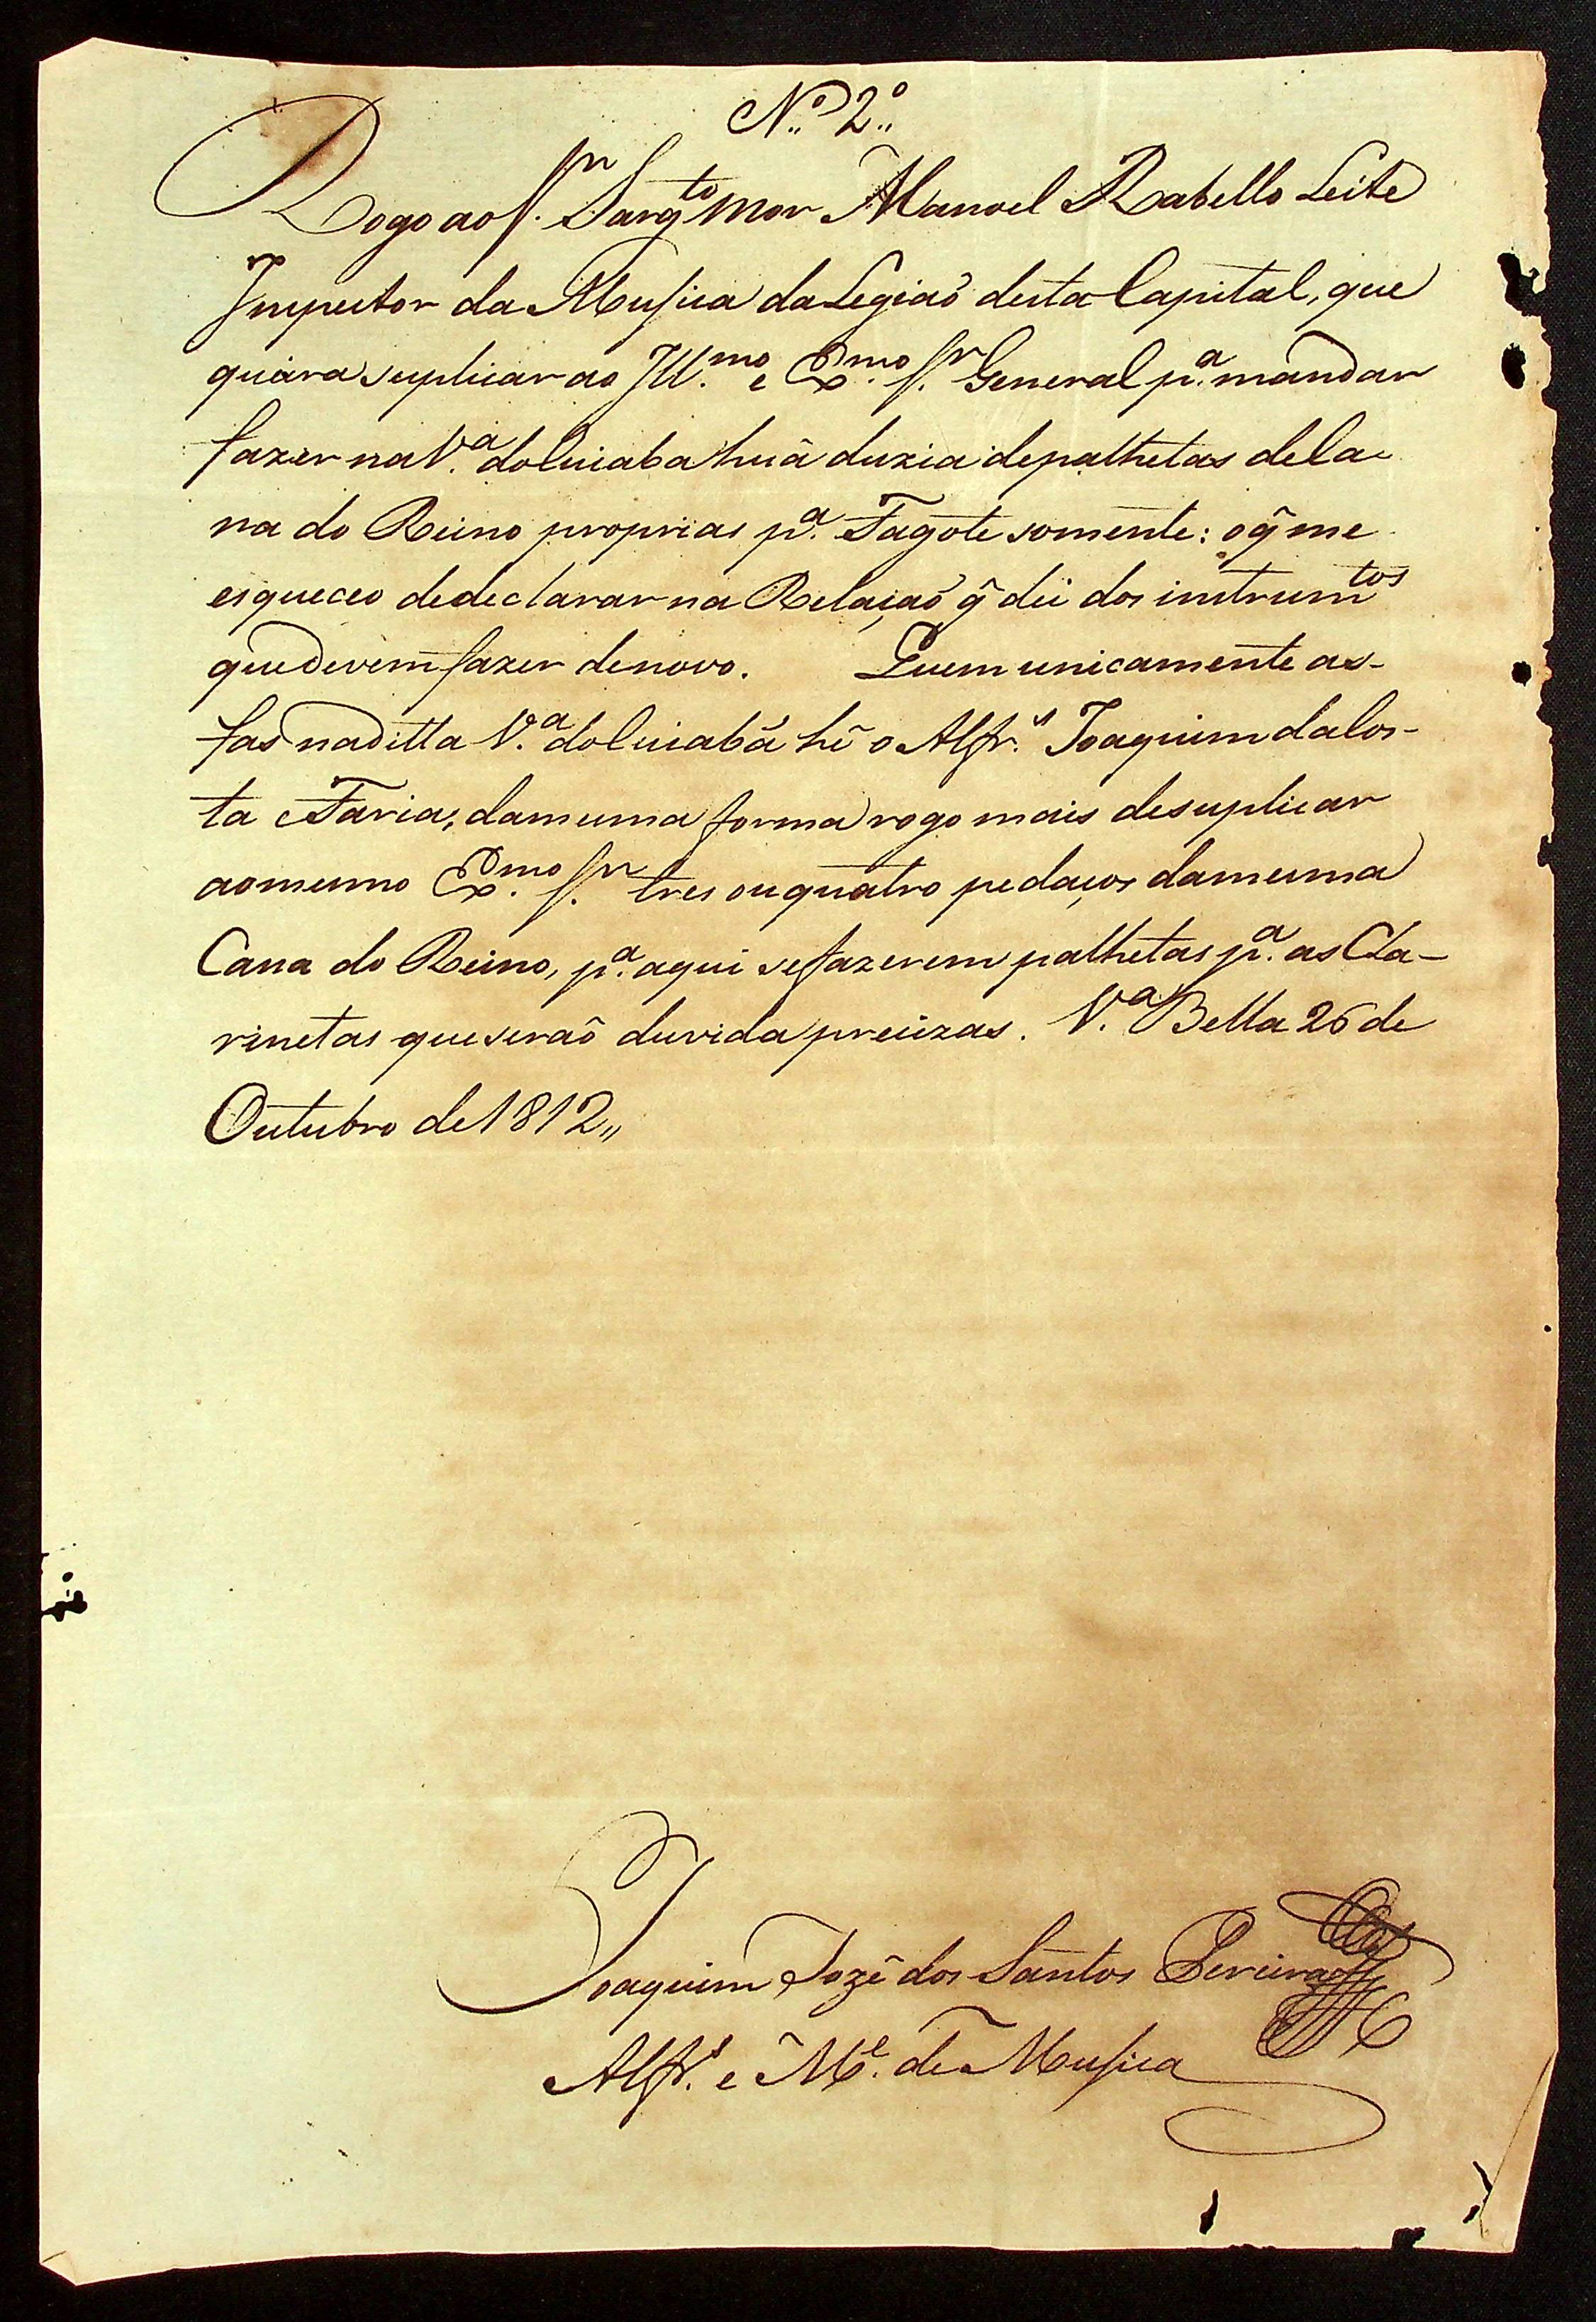 N.º 2.º
Rogo ao S.r Sarg.to mor Manoel Rabello Leite
Inspector da Musica da Legiaõ desta Capital, que
queira suplicar ao Ill.mo e Ex.mo S.r General p.a mandar
fazer na V.a do Cuiaba huã duzia de palhetas de Ca-
na do Reino proprias p.a Fagote somente: o q̃ me
esqueceo de declarar na Relaçaõ q̃ dei dos instrum.tos
que devem fazer de novo. Quem unicamente as
fas na ditta V.a do Cuiabá hé o Alfr.s Joaquim da Cos-
ta e Faria, da mesma forma rogo mais de suplicar
ao mesmo Ex.mo S.r tres ou quatro pedaços da mesma
Cana do Reino, p.a aqui se fazerem palhetas p.a as Cla-
rinetas que seraõ duvida precizas. V.a Bella 26 de
Outubro de 1812,,
Joaquim Jozé dos Santos Pereira
Alfr.s e M.e de Musica